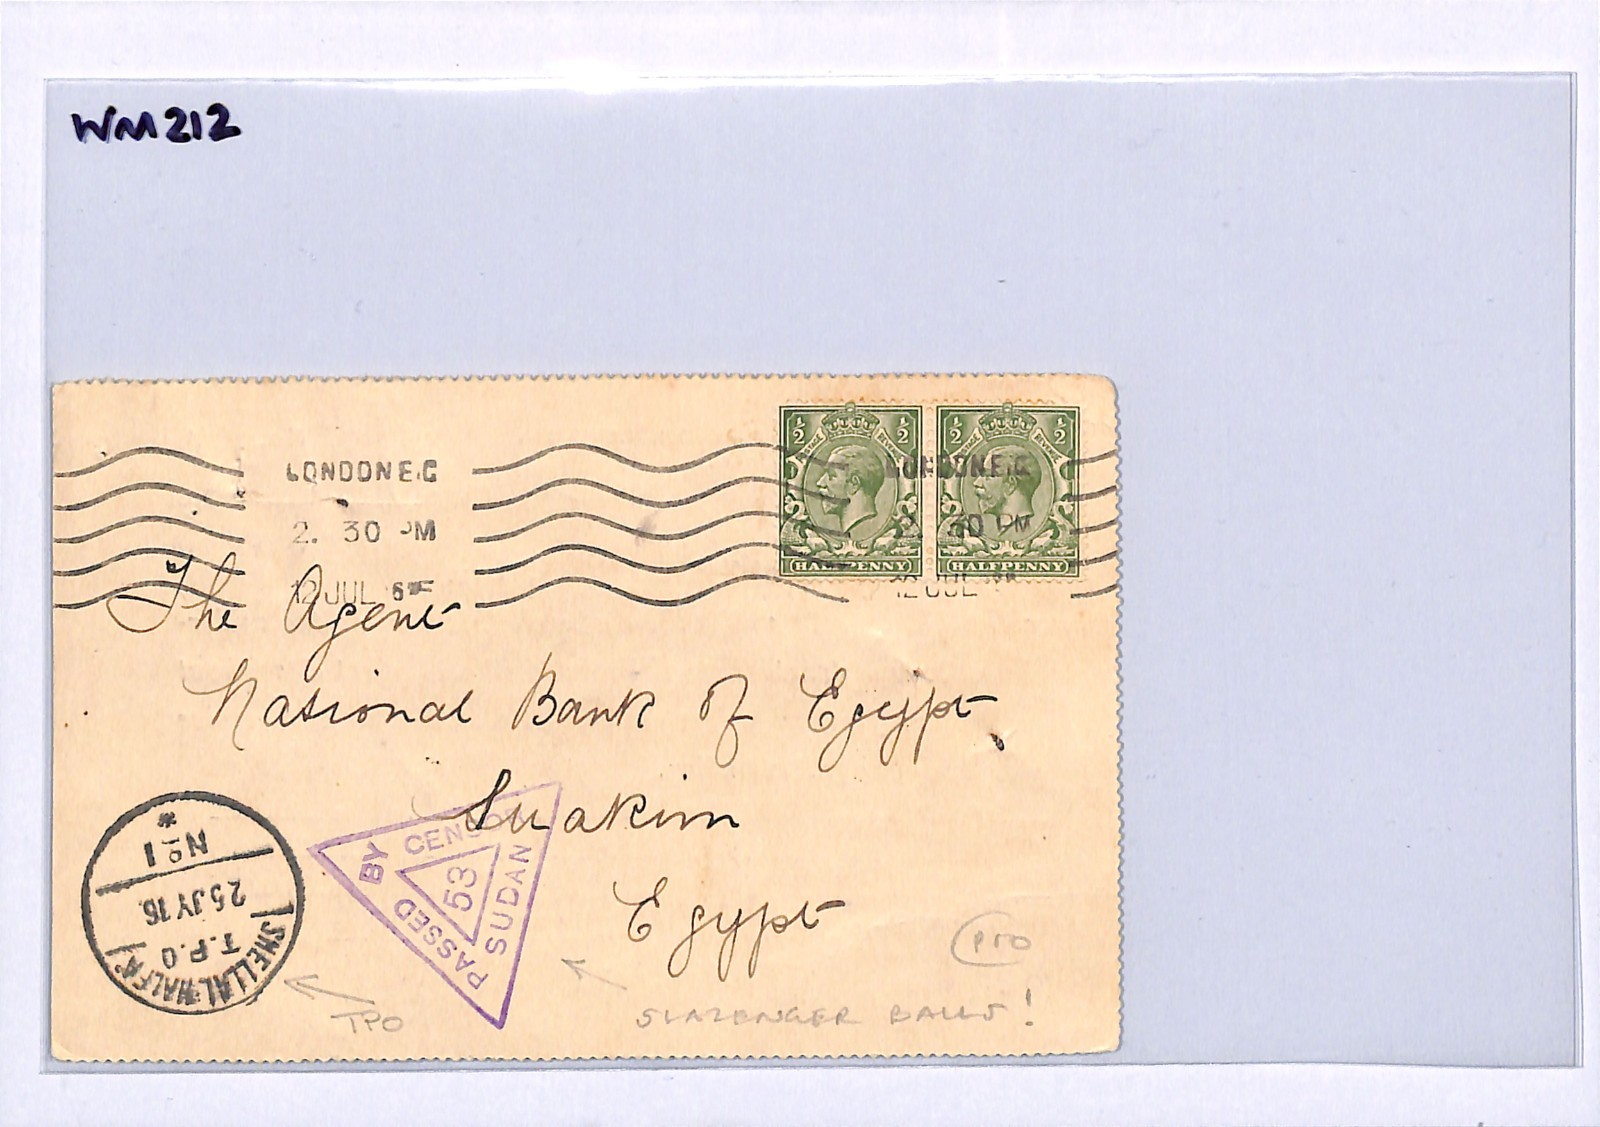 WM212
LONDON E.C
2. 30 PM
12 JUL
LONDON E.C
30 PM
12 JUL
1/2 1/2
HALFPENNY
1/2 1/2
HALFPENNY
The Agent
National Bank of Egypt
Suakim
Egypt
PASSED BY CENSOR
SUDAN
53
SHELLAL-HALFA
T.P.O
25 JY 16
No 1
TPO
SLAZENGER BALLS!